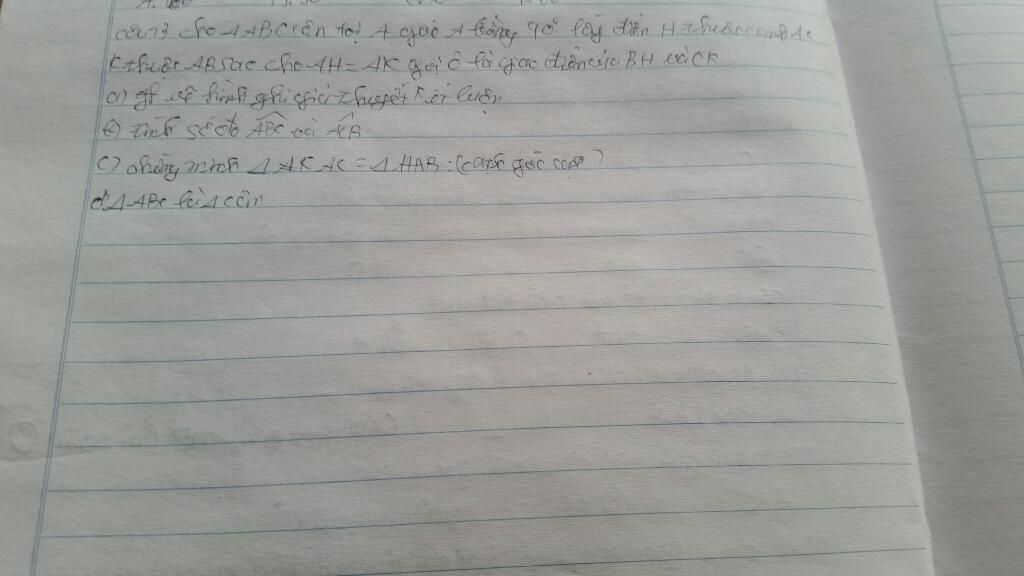 cho ΔABC cân tại A góc A bằng 40° lấy điểm H thuộc cạnh AC
K thuộc AB sao cho AH = AK gọi O là giao điểm của BH và CK
a) vẽ hình ghi giả thuyết kết luận
b) tính số đo ABC và ACB
c) chứng minh Δ AKAC = Δ HAB : (cạnh góc cạnh)
d) Δ ABC là Δ cân